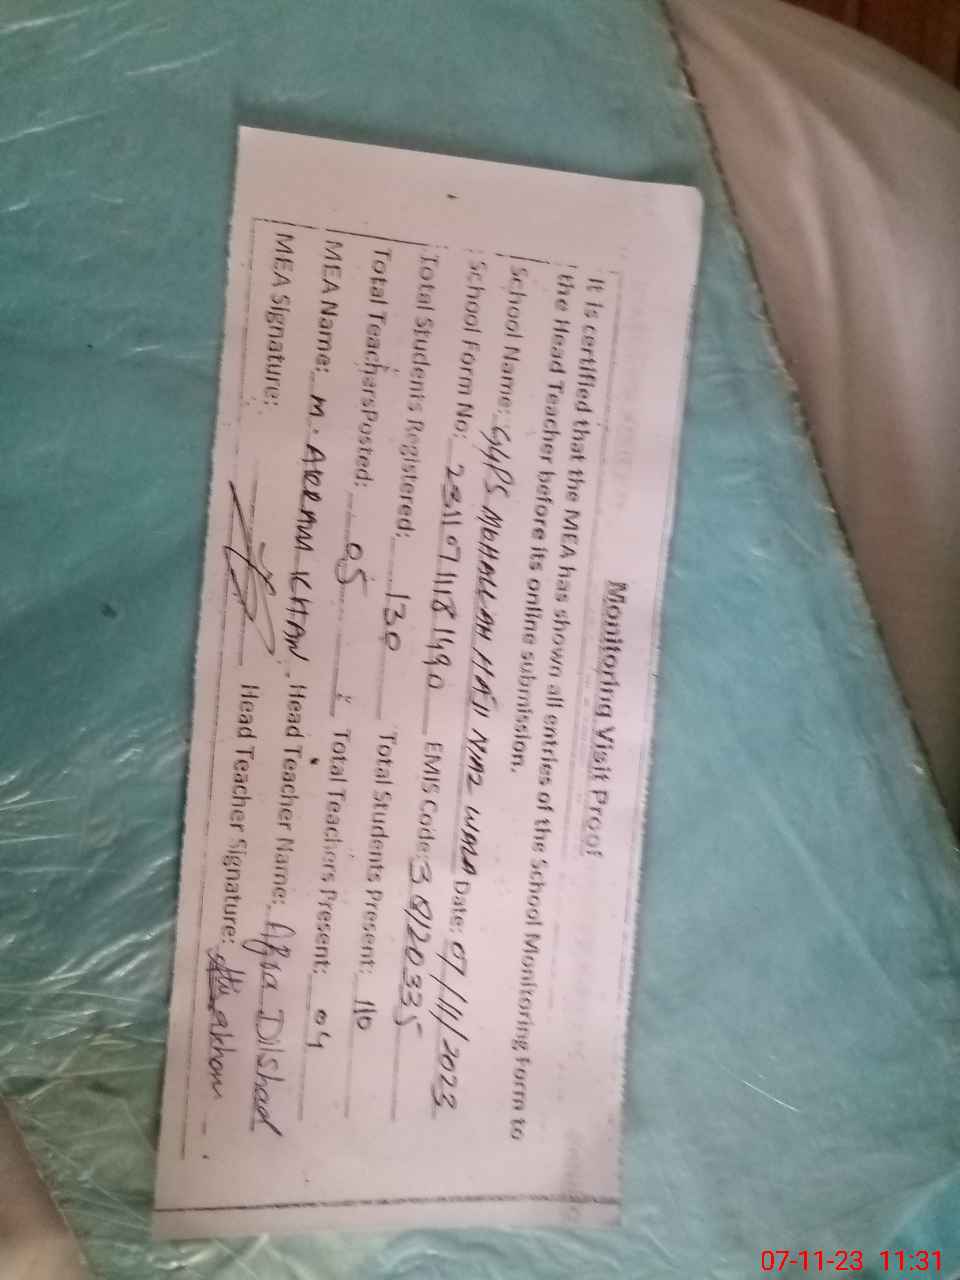 Monitoring Visit Proof
It is certified that the MEA has shown all entries of the School Monitoring Form to
the Head Teacher before its online submission.
School Name: GGPS MOHALLAH HAJI NIAZ WALA Date: 07/11/2023
School Form No: EMIS Code: 38120335
Total Students Registered: 130 Total Students Present: 110
Total Teachers Posted: 05 Total Teachers Present: 04
MEA Name: M. AKRAM KHAN Head Teacher Name: Afra Dilshad
MEA Signature: Head Teacher Signature:
07-11-23 11:31